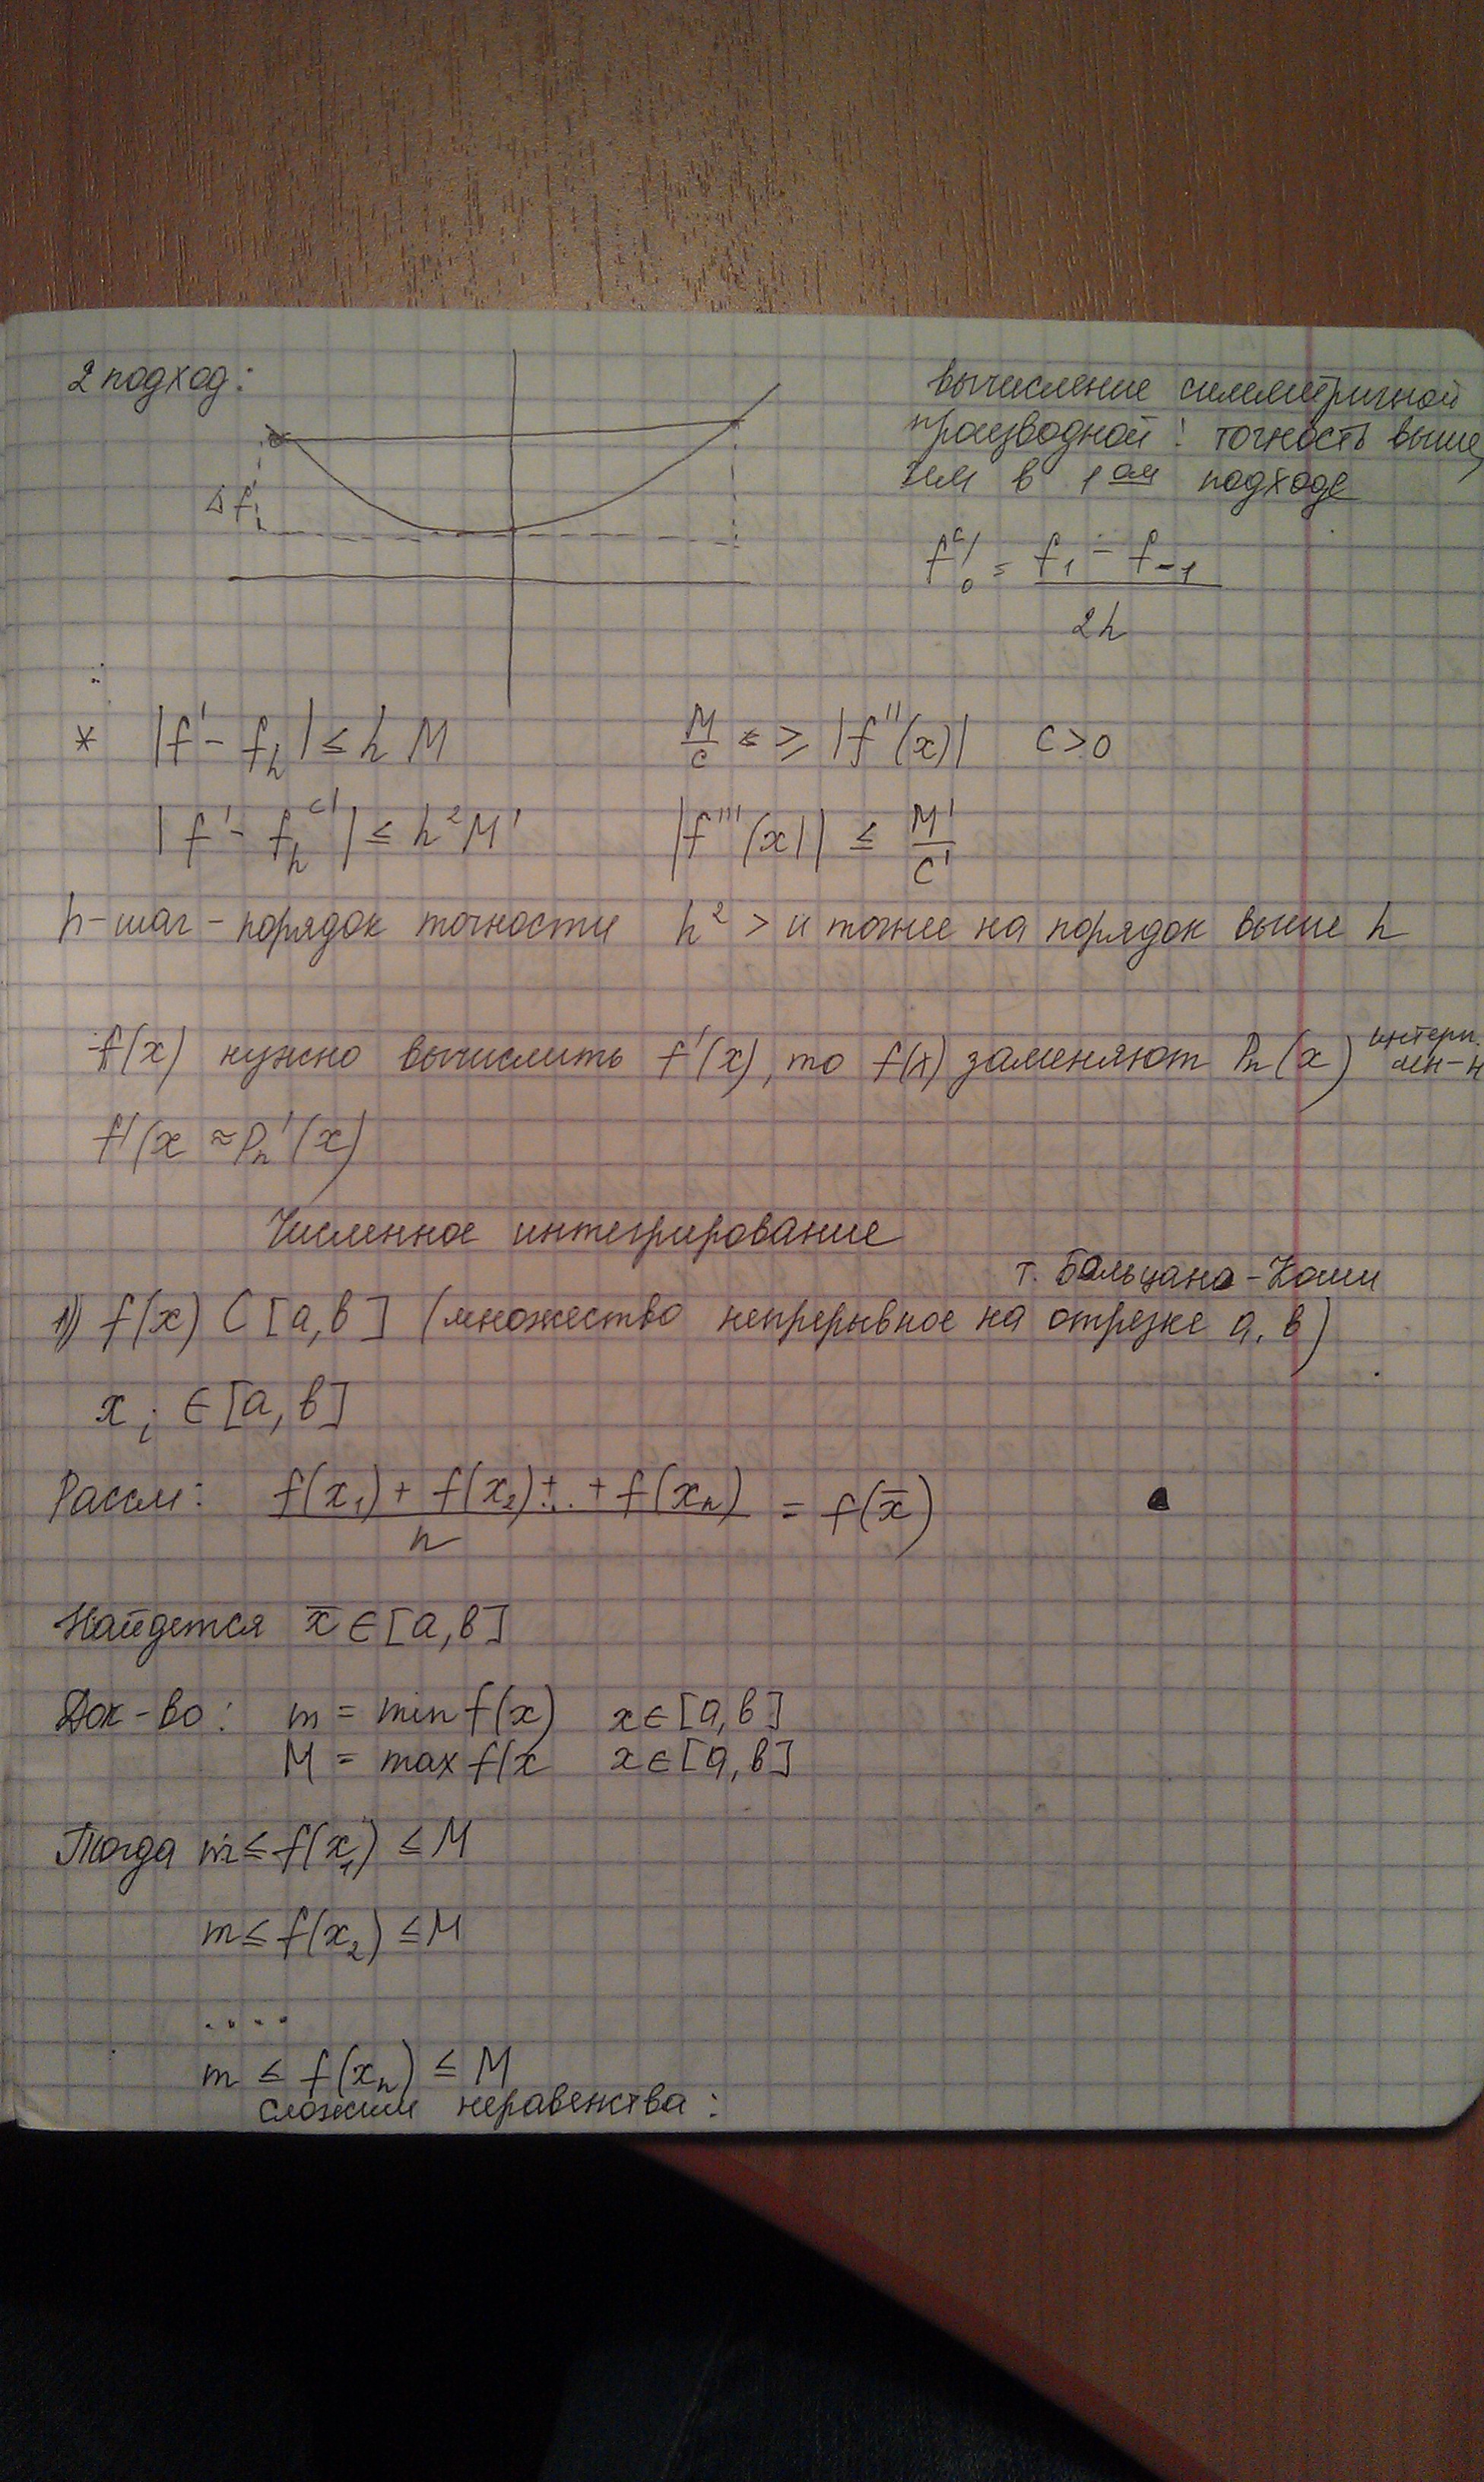 2 подход:
вычисление симметричной
производной: точность выше,
чем в 1ом подходе
Δf
f₀ᶜ′ = (f₁ - f₋₁) / 2h
* |f′ - fₕ| ≤ h M    M/c ≥ |f″(x)|    c > 0
|f′ - fₕᶜ′| ≤ h² M′    |f‴(x)| ≤ M′/c′
h - шаг - порядок точности    h² > и точнее на порядок выше h
f(x) нужно вычислить f′(x), то f(x) заменяют Pₙ(x) интерп. мн-н
f′(x ≈ Pₙ′(x)
Численное интегрирование
т. Больцано-Коши
1) f(x) C [a, b] (множество непрерывное на отрезке a, b)
xᵢ ∈ [a, b]
Рассм: (f(x₁) + f(x₂) + ... + f(xₙ)) / n = f(x̄)
Найдется x̄ ∈ [a, b]
Док-во: m = min f(x)    x ∈ [a, b]
M = max f(x    x ∈ [a, b]
Тогда m ≤ f(x₁) ≤ M
m ≤ f(x₂) ≤ M
....
m ≤ f(xₙ) ≤ M
сложим неравенства: